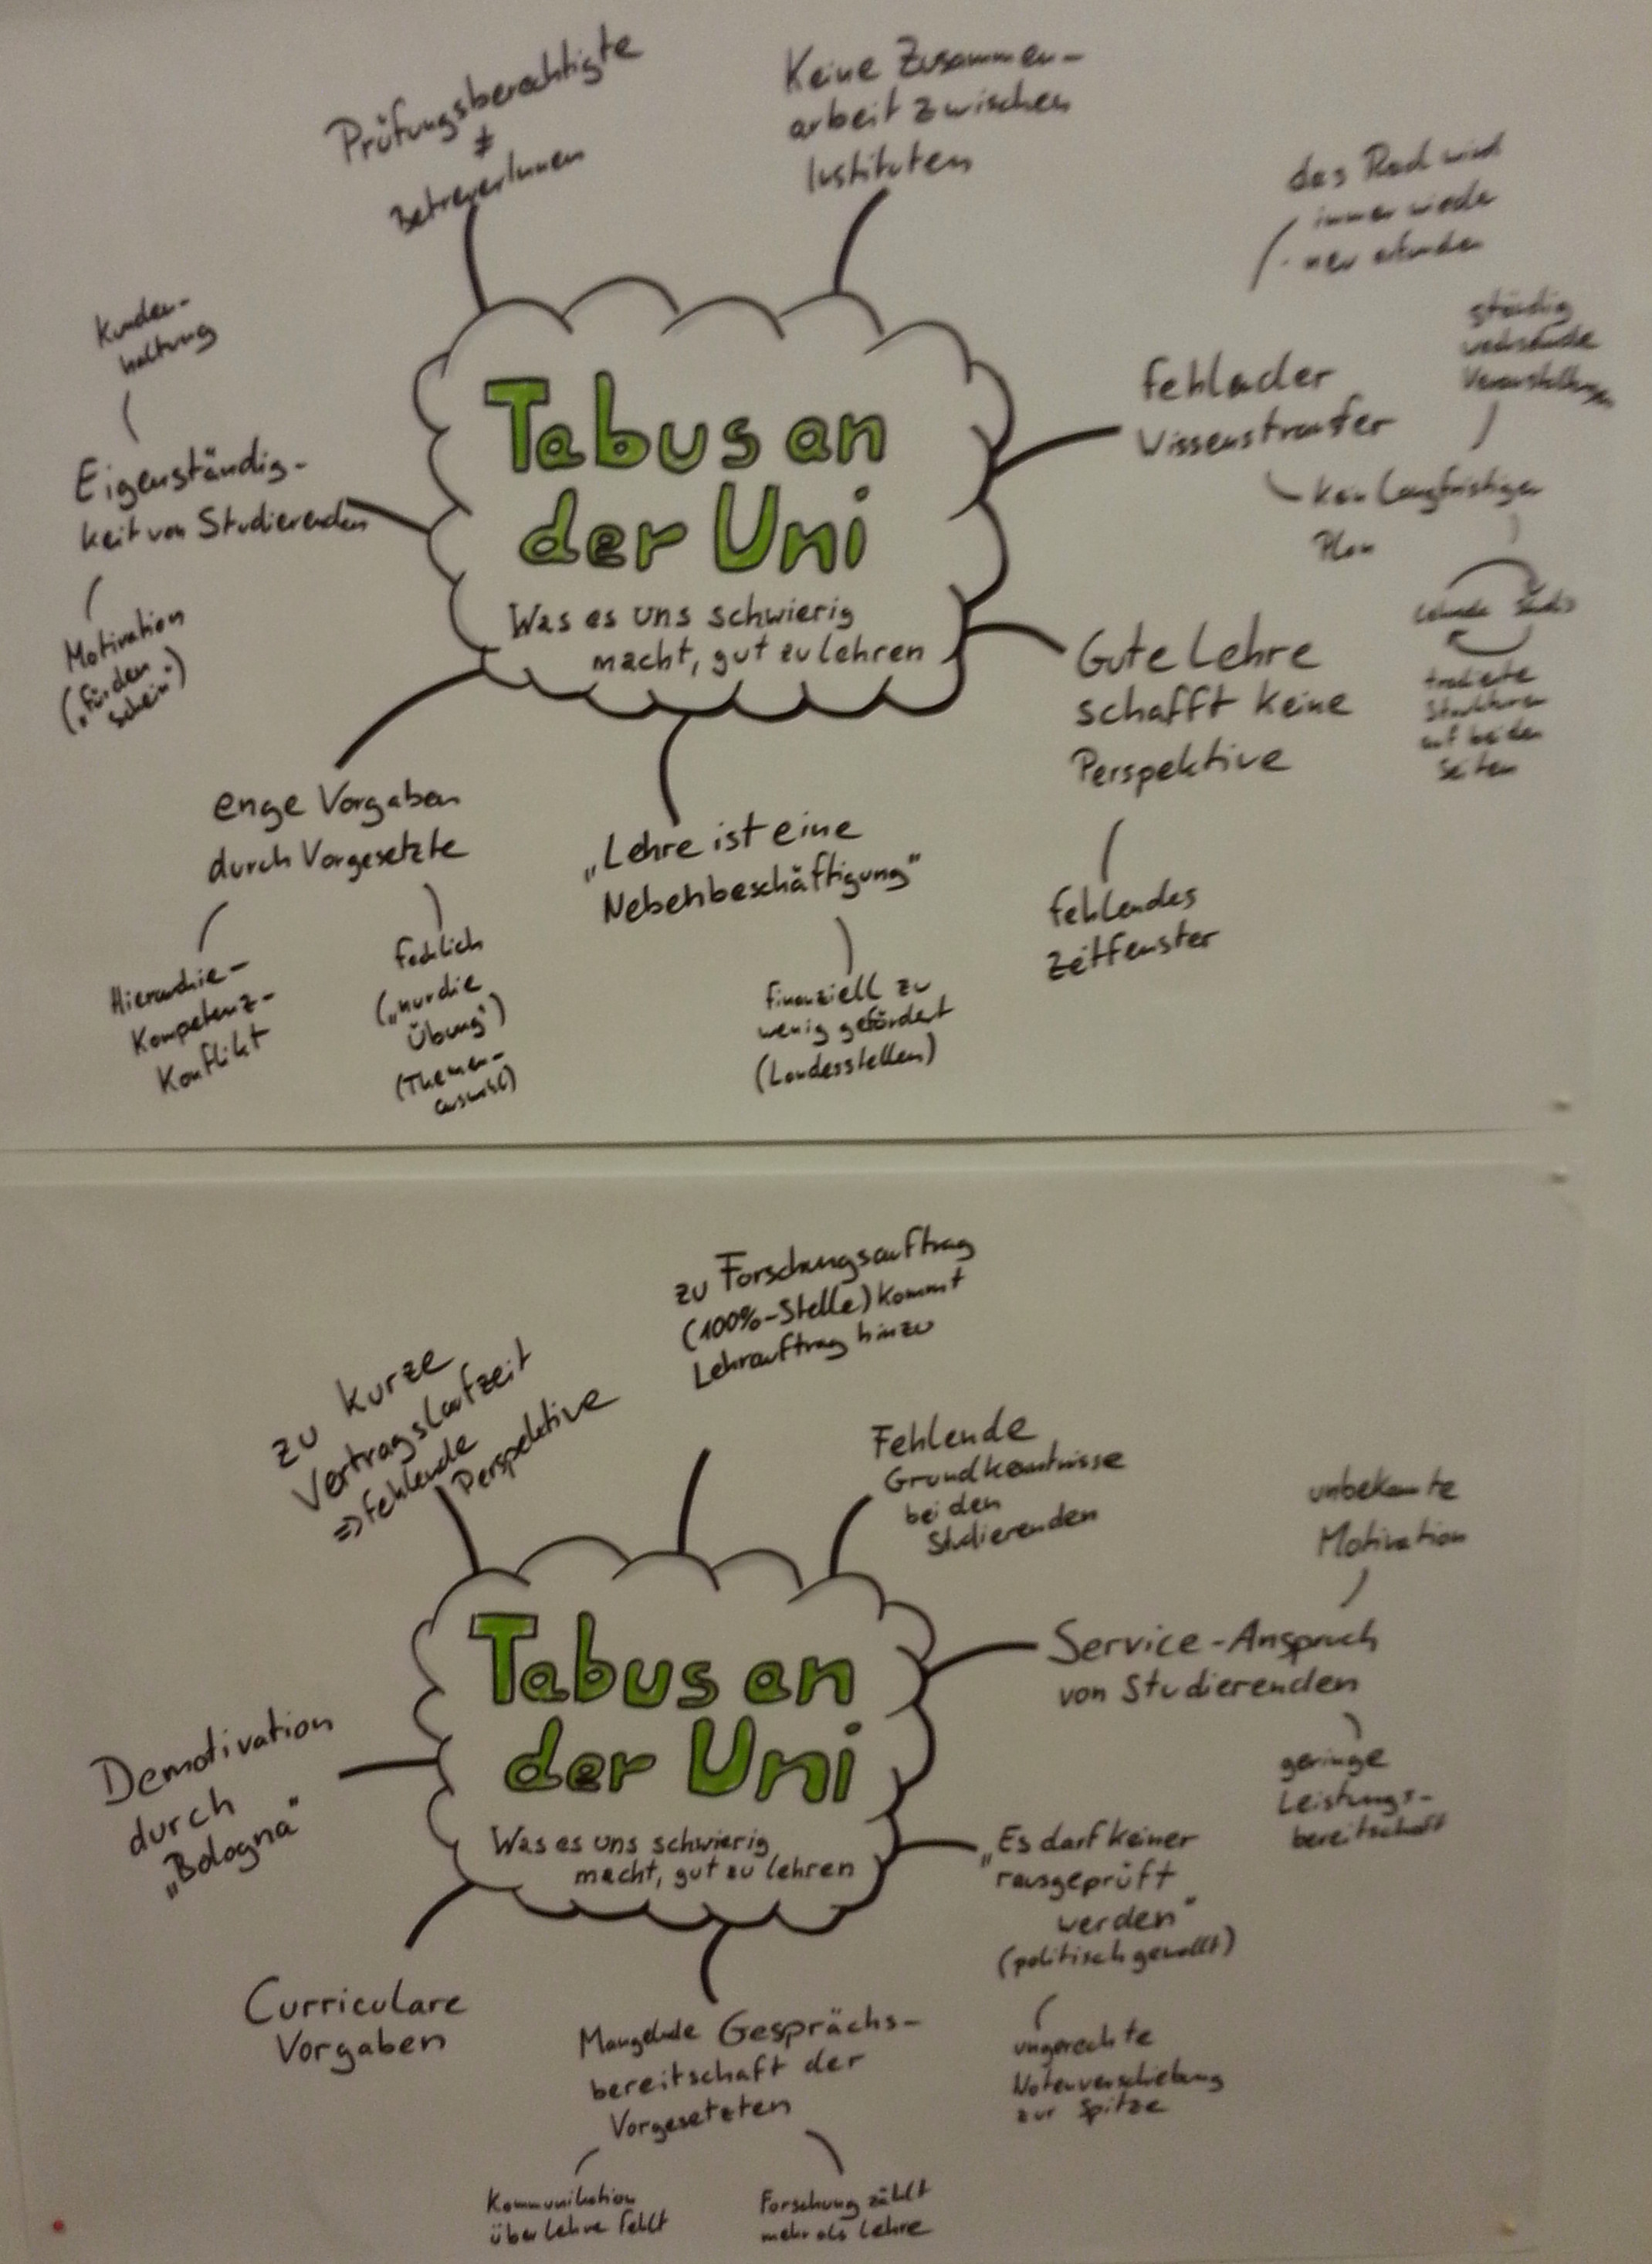 Prüfungsberechtigte
≠
BetreuerInnen
Keine Zusammen-
arbeit zwischen
Instituten
das Rad wird
immer wieder
neu erfunden
Kunden-
haltung
Eigenständig-
keit von Studierenden
Motivation
("für den
Schein")
Tabus an
der Uni
Was es uns schwierig
macht, gut zu lehren
fehlender
Wissenstransfer
ständig
wechselnde
Veranstaltungen
kein langfristiger
Plan
Lehrende Studis
Strukturen
auf beiden
Seiten
Gute Lehre
schafft keine
Perspektive
fehlendes
Zeitfenster
enge Vorgaben
durch Vorgesetzte
Hierarchie-
Kompetenz-
Konflikt
fachlich
("nur die
Übung")
(Themen-
auswahl)
„Lehre ist eine
Nebenbeschäftigung"
finanziell zu
wenig gefördert
(Landesstellen)
zu kurze
Vertragslaufzeit
=> fehlende
Perspektive
zu Forschungsauftrag
(100%-Stelle) kommt
Lehrauftrag hinzu
Fehlende
Grundkenntnisse
bei den
Studierenden
unbekannte
Motivation
Service-Anspruch
von Studierenden
geringe
Leistungs-
bereitschaft
Tabus an
der Uni
Was es uns schwierig
macht, gut zu lehren
Demotivation
durch
„Bologna"
Curriculare
Vorgaben
„Es darf keiner
rausgeprüft
werden"
(politisch gewollt)
ungerechte
Notenverschiebung
zur Spitze
Mangelnde Gesprächs-
bereitschaft der
Vorgesetzten
Kommunikation
über Lehre fehlt
Forschung zählt
mehr als Lehre